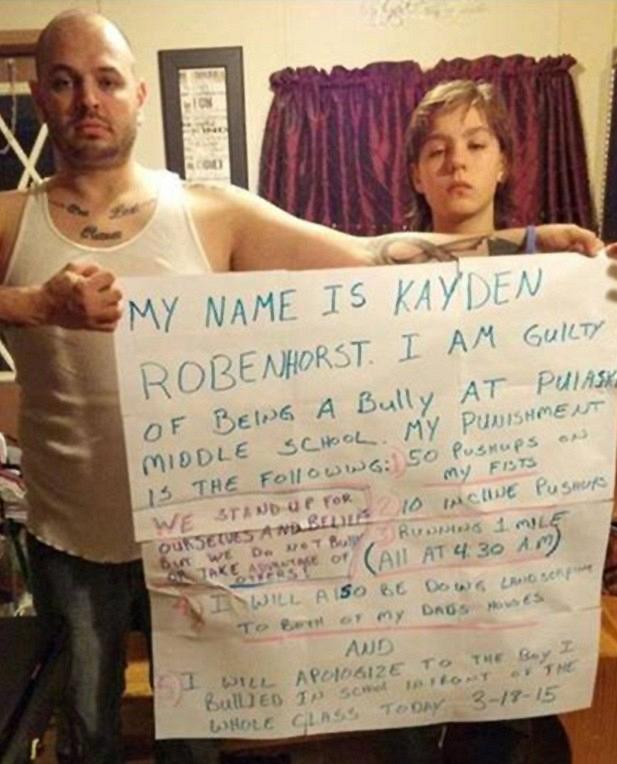 MY NAME IS KAYDEN
ROBENHORST. I AM GUILTY
OF BEING A BUlly AT PUlASK
MIDDLE SCHOOL. MY PUNISHMENT
IS THE FOllOWING: 1) 50 PUSHUPS ON
MY FISTS
WE STAND UP FOR
OURSELVES AND BELIEFS
BUT WE DO NOT BUlly
OR TAKE ADVANTAGE OF
OTHERS!
2) 10 INCLINE PUSHUPS
3) RUNNING 1 MILE
(All AT 4:30 A.M)
4) I WILL AlSO BE DOING LANDSCAPING
TO BOTH OF MY DADS HOUSES
AND
5) I WILL APOlOGIZE TO THE BOY I
BUllIED IN SCHOOL INFRONT OF THE
WHOLE CLASS TODAY 3-18-15